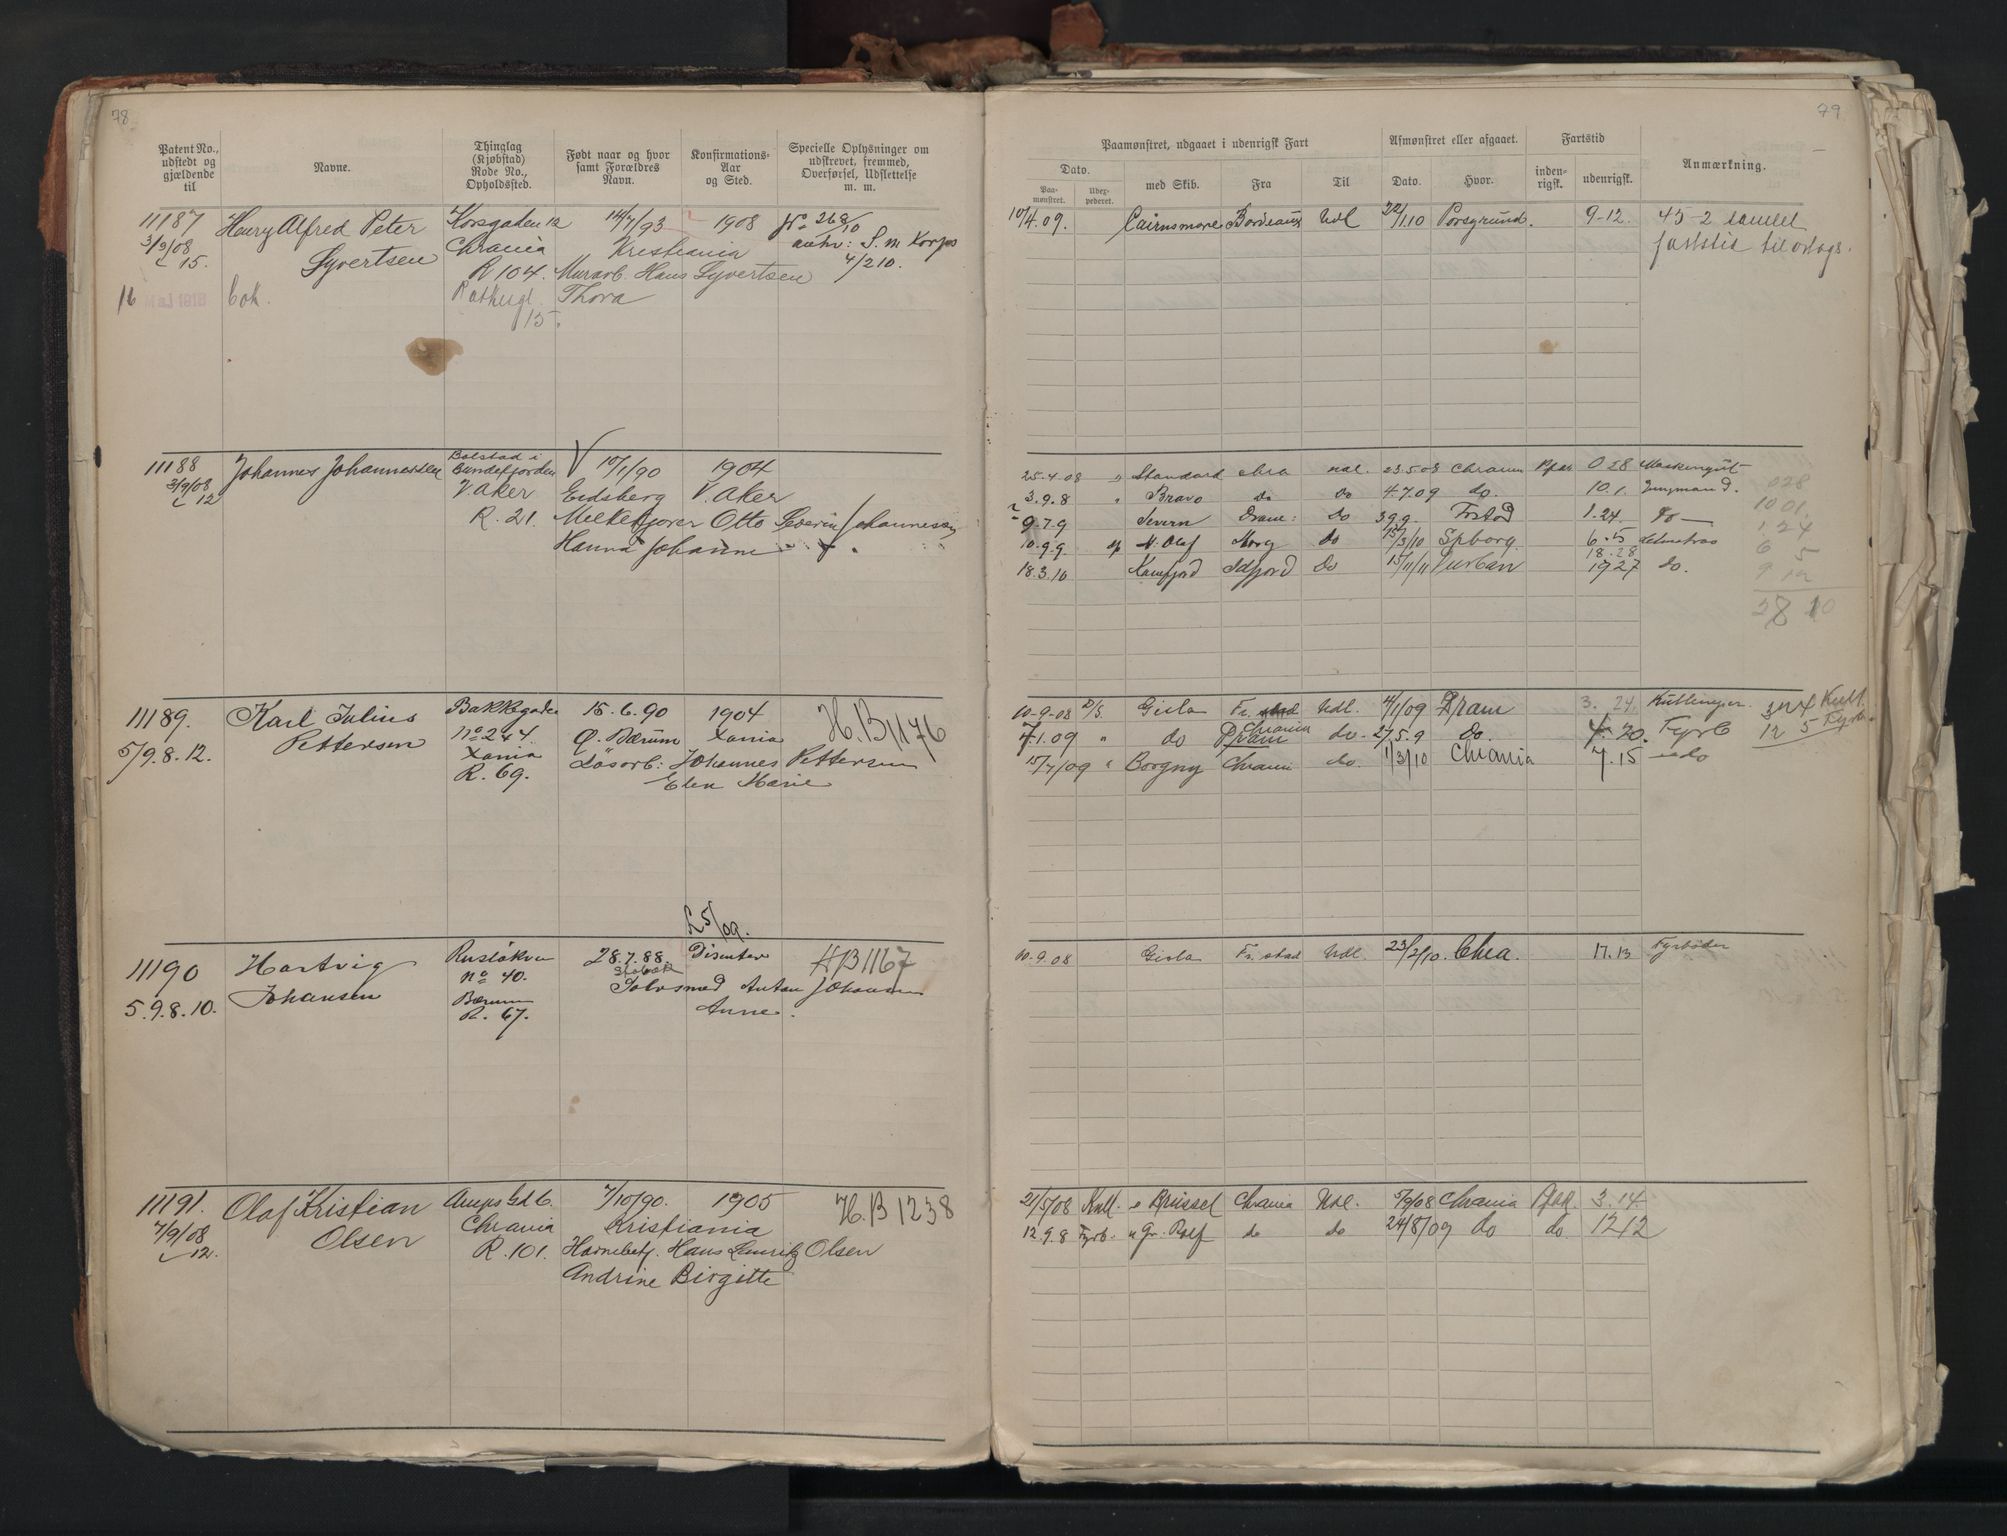 78
Patent No., udstedt og gjældende til
Navne.
Thinglag (Kjøbstad) Rode No., Opholdssted.
Født naar og hvor samt Forældres Navn.
Konfirmations-Aar og Sted.
Specielle Oplysninger om udskrevet, fremmed, Overførsel, Udslettelse m. m.
11187 Henry Alfred Peter Korsgaden 12 14/7/93 1908 No 268/10
3/9/08 Syvertsen Chrania Kristiania anhv: S. m Korps
15. R 104. Murarb. Hans Syvertsen 4/2 10.
16 Maj 1918 bok. Thora
15.
11188 Johannes Johannessen Bolstad i Bundefjorden 10/1/90 1904
3/9/08 V. Aker Eidsberg V. Aker
12 R. 21. Melkekjører Otto Severin Johannessen
Hanna Johanne
11189. Karl Julius Bakkegaden 15.6.90 1904 H.B 1176
5/9.8.12. Pettersen No 244 Ø. Bærum Xania
Xania Løsarb: Johannes Pettersen
R. 69. Elen Marie
5/09.
11190 Hartvig 28.7.88. Disenter HB 1167
5.9.8.10. Johansen No 40. Anton Johansen
Bærum Anne.
R. 67.
11191. Olaf Kristian 7/10/90. 1905 H.B 1238
7/9/08 Olsen Chrania Kristiania
12. R. 101. Hans Olsen
Andrine Birgitte
79
Paamønstret, udgaaet i udenrigsk Fart
Afmønstret eller afgaaet.
Fartstid
Anmærkning.
Dato.
Paa-mønstret.
Udex-pederet.
med Skib.
Fra
Til
Dato.
Hvor.
inden-rigsk.
udenrigsk.
10/4.09. Cairnsmore Bordeaux Udl 22/1 10 Porsgrund. 9-12. 45-2 samlet
fartstid til orlogs.
25.4.08 " Standard chra udl. 23.5.08 Chrania 0 28
3.9.8 " Bravo do do 4.7.09 do. 10.1. Jungmand.
9.7.9 Severn Dram: Do 3.9.9. Frstad 1.24. do
10.9.9. St. Olaf do 15/3/10 Spborg. 6.5
18.28
18.3.10 do 15/11/11 Durban 19 27 do.
028
10 01.
1.24
6 5
10.9.08 D/S. Gisla Fr.stad Udl. 4/1/09 Dram 3. 24. Kullemper.
7.1.09 " do Chrania do. 27/5.9 do. 4. 20. Fyrb
15/7/09 " Borgny Chrania do. 1/3/10 Chrania 7.15 do
12 5 Fyrb.
10.9.08 Gisla Fr.stad Udl. 23/2/10. Chra. 17.13 Fyrbøder
21/5/08 Kull. " Brüssel Chrania Udl. 5/9/08 Chrania 3.14
12.9.8 Fyrb. " Gr. Rolf do do 24/8/09 do do. 12 12